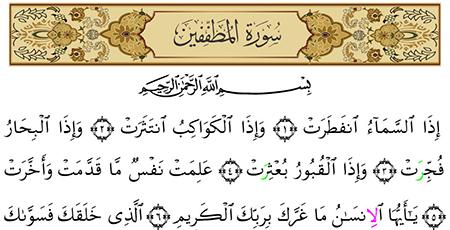 سورة المطففين
بسم الله الرحمن الرحيم
إِذَا السَّمَاءُ انفَطَرَتْ ﴿١﴾ وَإِذَا الْكَوَاكِبُ انتَثَرَتْ ﴿٢﴾ وَإِذَا الْبِحَارُ
فُجِّرَتْ ﴿٣﴾ وَإِذَا الْقُبُورُ بُعْثِرَتْ ﴿٤﴾ عَلِمَتْ نَفْسٌ مَّا قَدَّمَتْ وَأَخَّرَتْ
﴿٥﴾ يَا أَيُّهَا الْإِنسَٰنُ مَا غَرَّكَ بِرَبِّكَ الْكَرِيمِ ﴿٦﴾ الَّذِي خَلَقَكَ فَسَوَّىٰكَ